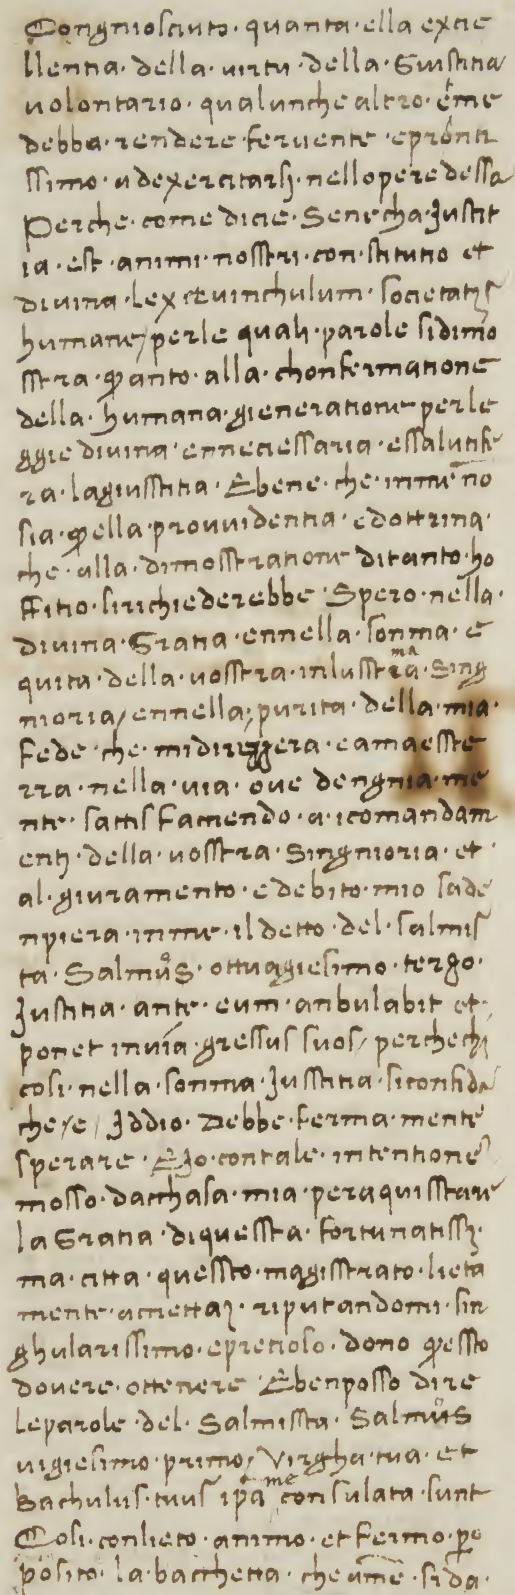 Congniosciuto · quanta · ella excie
llentia · della · uirtu · della · Giustitia
uolontario · qualunche altro · eme
debba · rendere feruente · epronti
ssimo · adexercitarsj · nellopere dessa
Perche · come dicie · Senecha · Justit
ia · est · animi · nostri · constitutio et
diuina · lex et uinchulum · societatis
humane / perle quali · parole sidimo
sstra quanto · alla · chonfermatione
della · humana · gieneratione perle
ggie diuina · enneciessaria · essalutife
ra · lagiusstitia · Ebene · che · inme no
sia · quella prouuidentia · edottrina ·
che · alla · dimosstratione ditanto · ho
ffitio · sirichiederebbe · Spero · nella ·
diuina · Gratia · ennella · somma · e
quita · della · uosstra · inlusstrima · Sing
nioria / ennella · purita · della · mia ·
fede · che · midireggera · eamaesste
rra · nella · uia · oue dengnia me
nte · sattisfaciendo · a · icomandam
entj · della · uosstra · Singnioria · et ·
al · giuramento · edebito · mio sade
npiera · inme · il detto · del · salmis
ta · Salmus · ottuagiesimo · terzo ·
Justitia · ante · eum · anbulabit et ·
ponet inuia · gressus suos / perchechj
cosi · nella · somma · Justitia · siconfida
che / e / Iddio · Debbe · ferma · mente
sperare · Ejo · contale · intentione
mosso · dacchasa · mia · peraquisstare
la Gratia · diquessta · fortunatissi
ma · citta · quessto · magisstrato · lieta
mente · acciettai · riputandomi · sin
ghularissimo · epretioso · dono quessto
douere · ottenere · Ebenposso dire
leparole · del · Salmissta · Salmus
uigiesimo · primo / Virgha · tua · et
Bachulus · tuus ipa me consulata · sunt
Cosi · conlieto · animo · et fermo · pro
posito · la · bacchetta · che ame · si da ·